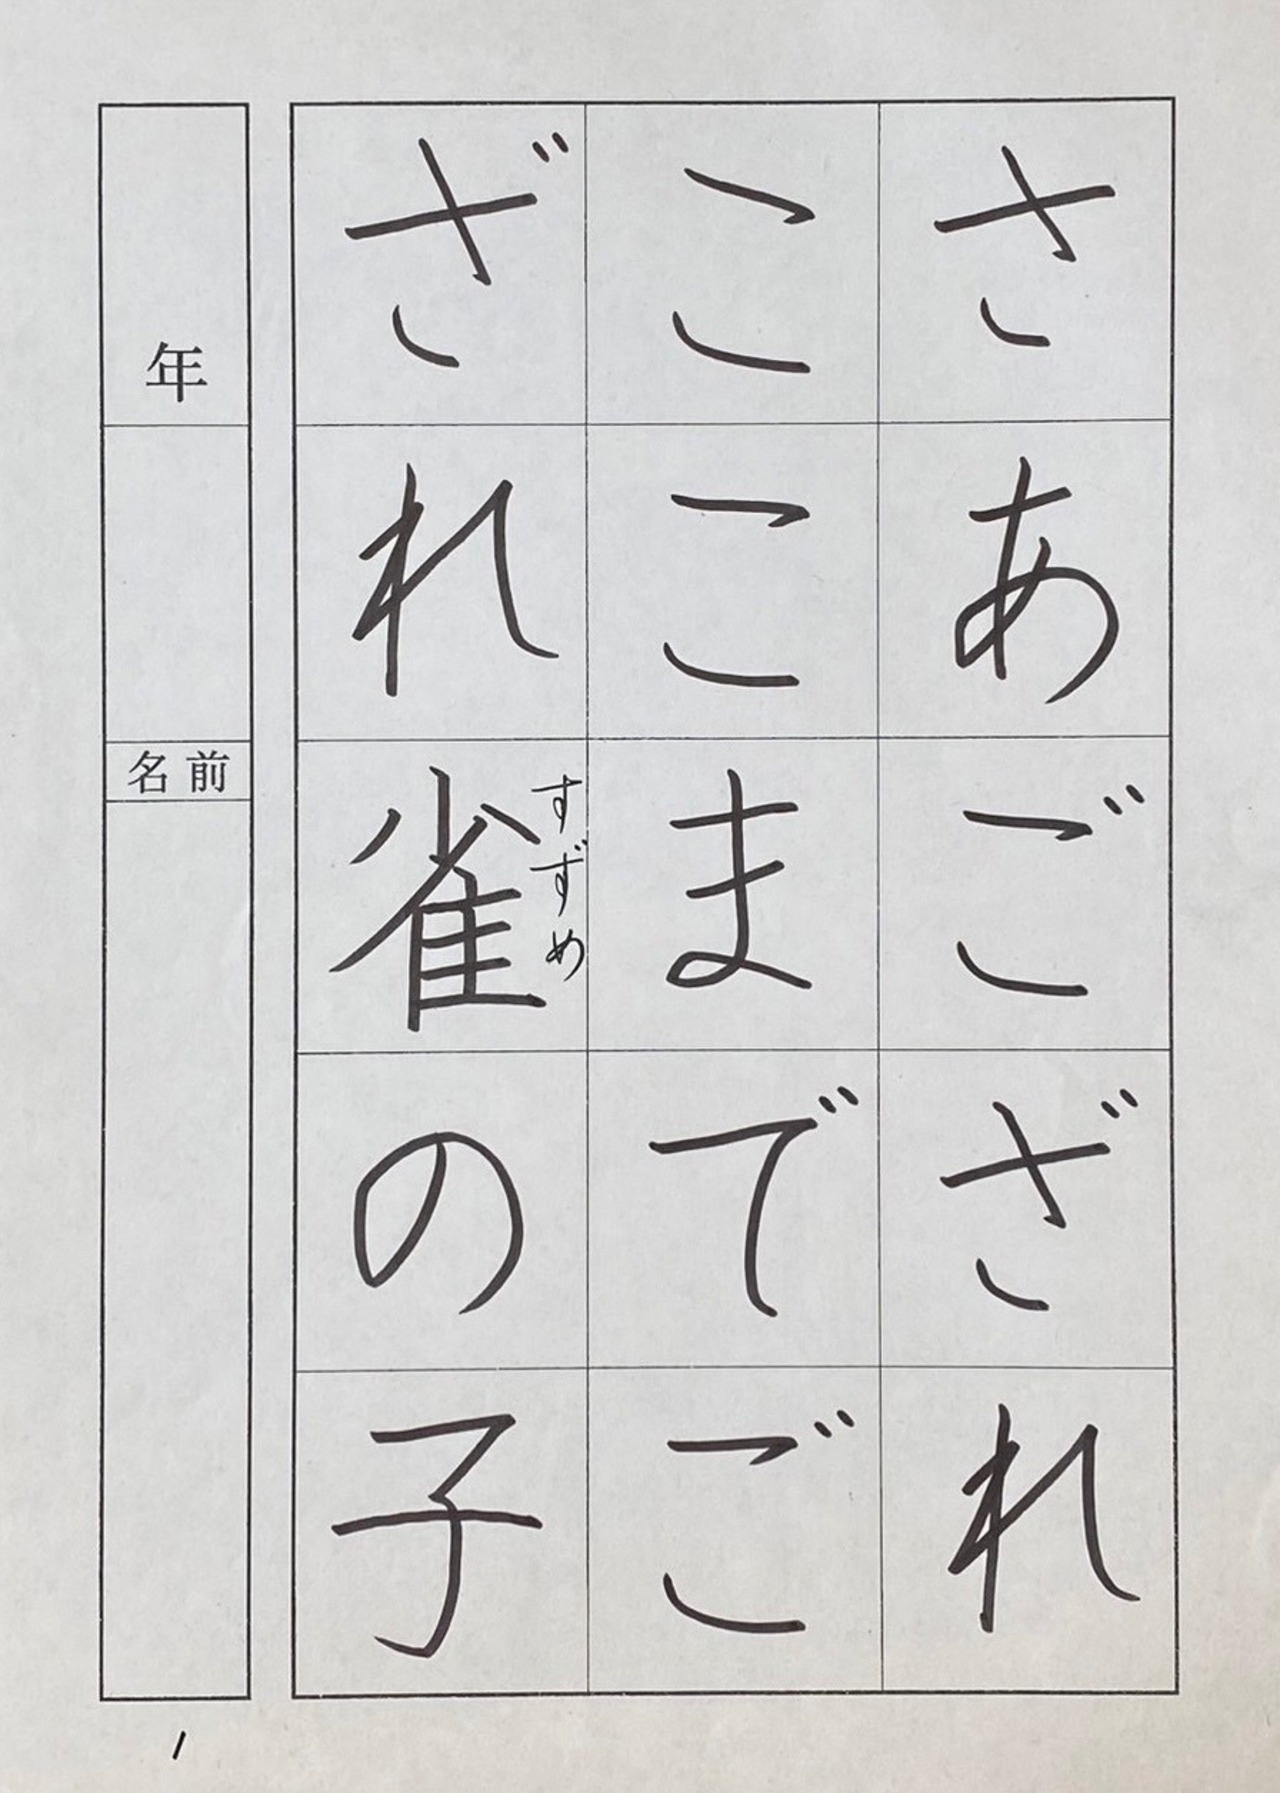 さあござれ
ここまでご
ざれ雀の子
すずめ
年
名前
1